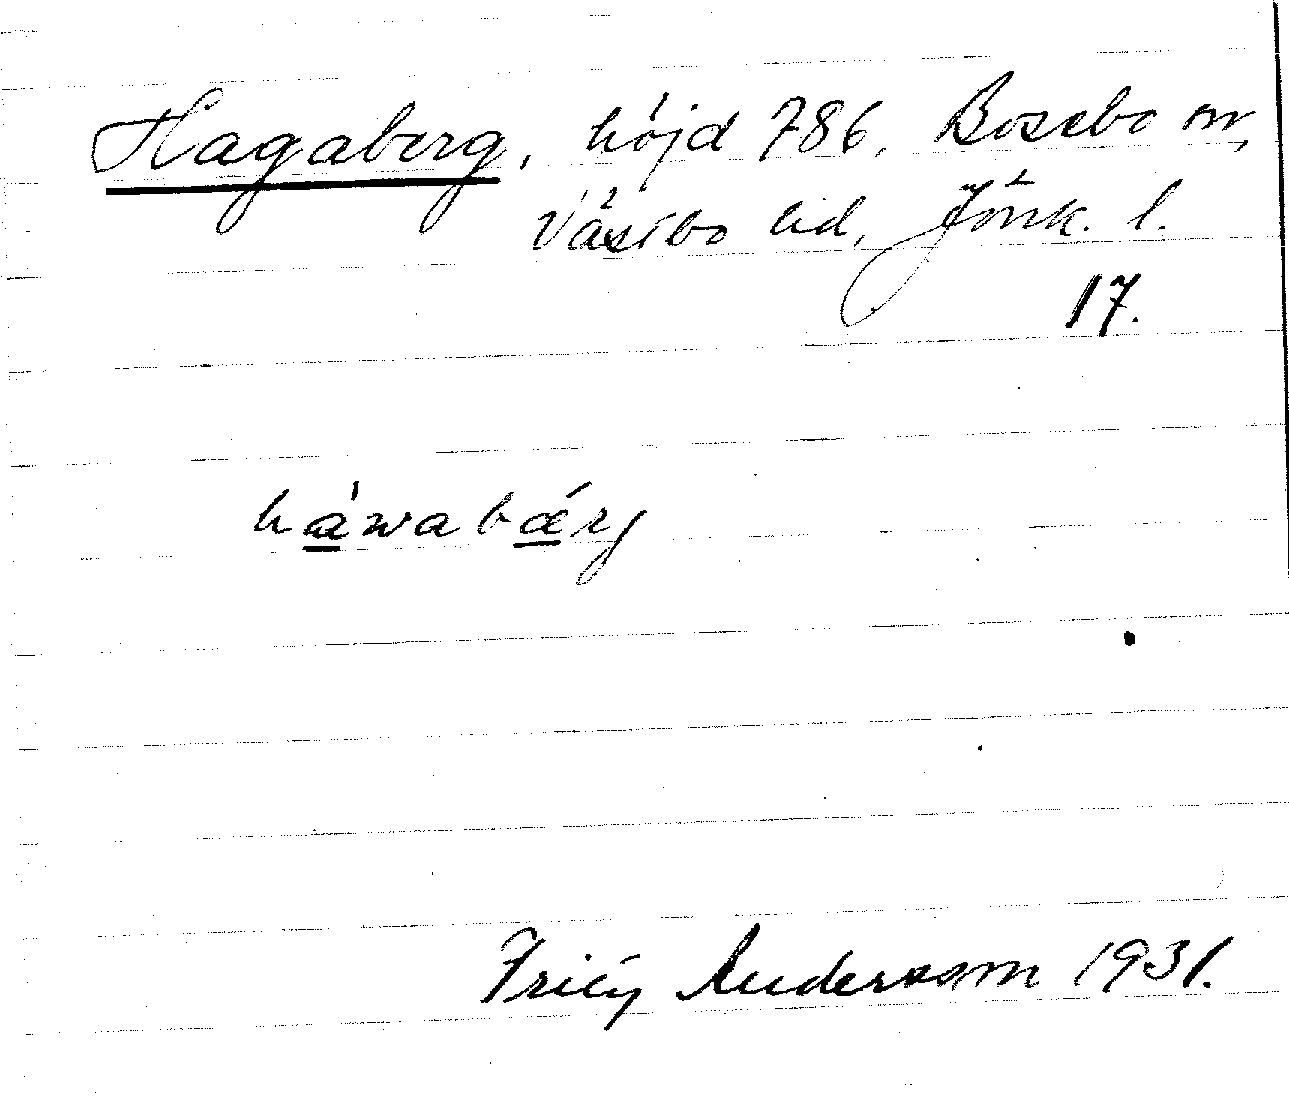 Hagaberg, höjd 786, Bosebo sn,
Västbo hd, Jönk. l.
17.
hàwabǽrj
Andersson 1931.